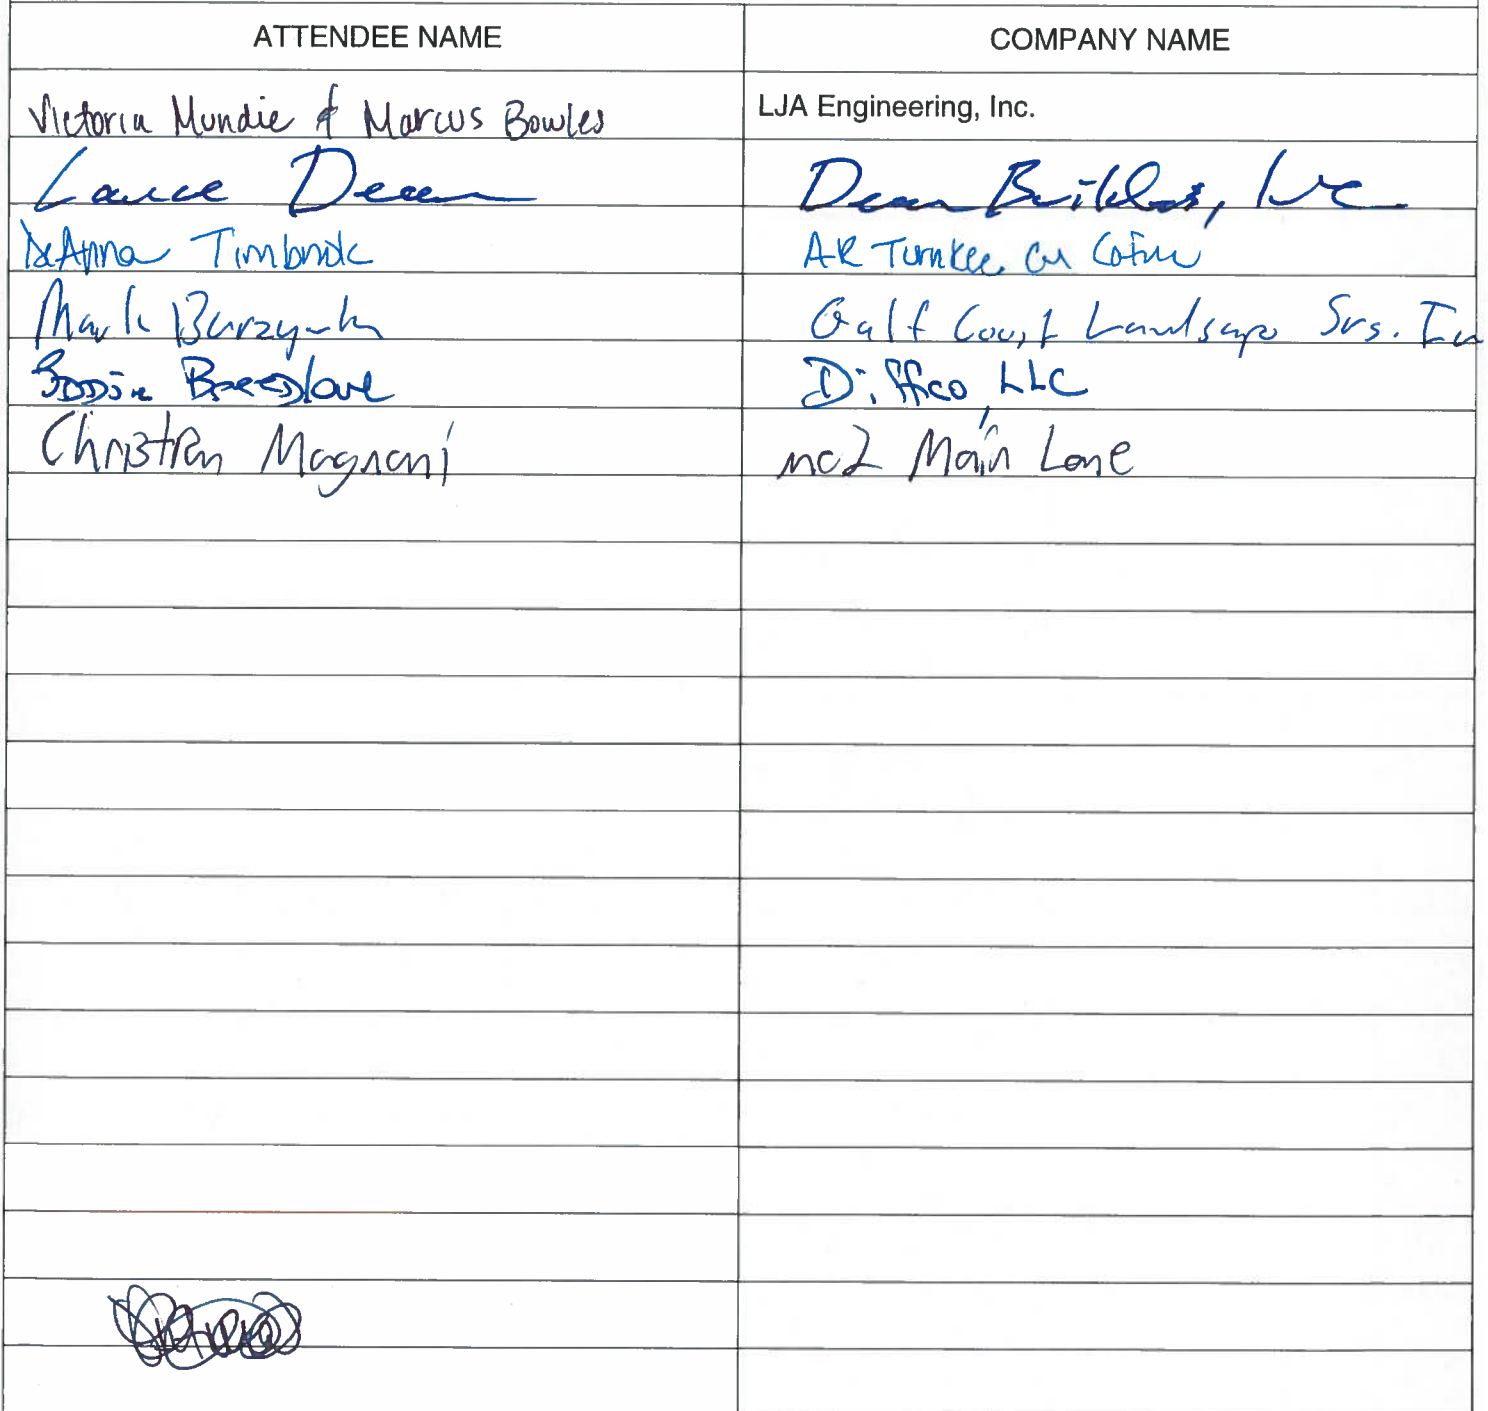 ATTENDEE NAME COMPANY NAME
Victoria Mundie & Marcus Bowles LJA Engineering, Inc.
Lance Dean Dean Builders, Inc
DeAnna Timbrook AR Turnkee
Mark Gulf Coast Landscape Srs. In
Bobbie Breedlove Diffco, LLC
Christian Magnani mc2 Main Lane